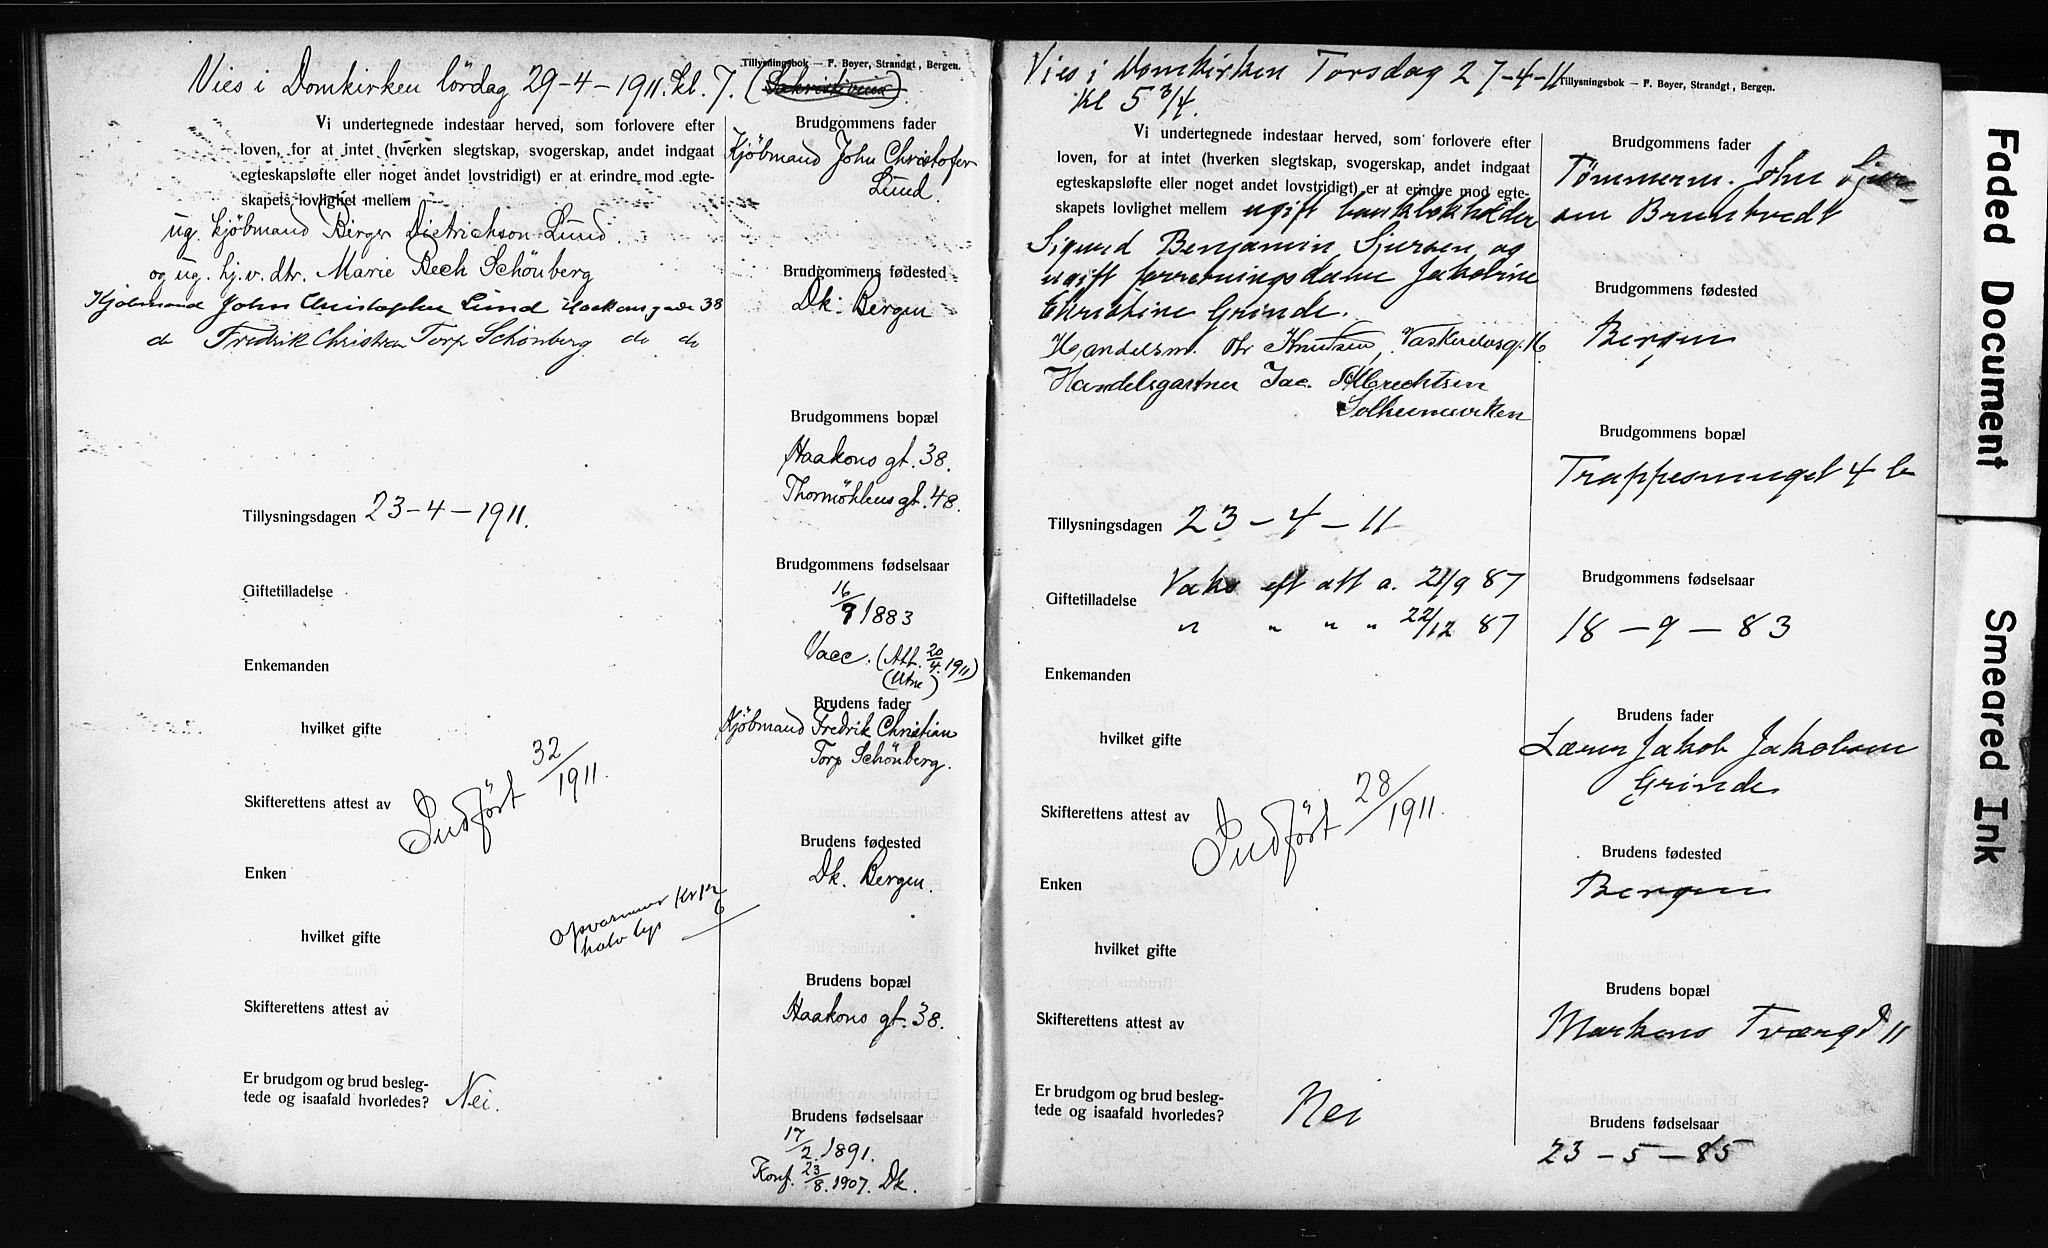 Vies i Domkirken lördag 29-4-1911. kl. 7. (Sakristiet)
Tillysningsbok — F. Beyer, Strandgt, Bergen.
Vi undertegnede indestaar herved, som forlovere efter
loven, for at intet (hverken slegtskap, svogerskap, andet indgaat
egteskapsløfte eller noget andet lovstridigt) er at erindre mod egte-
skapets lovlighet mellem
ug. kjöbmand Birger Dietrichson Lund
og ug. hj. v. dtr. Marie Bech Schönberg
Kjöbmand John Christopher Lund Haakonsgade 38
do Fredrik Christian Torp Schönberg do do
Tillysningsdagen 23-4-1911.
Giftetilladelse
Enkemanden
hvilket gifte
Skifterettens attest av
Indført 32/1911.
Enken
hvilket gifte
opvarmer Kr 12
halv lys 6
Skifterettens attest av
Er brudgom og brud besleg-
tede og isaafald hvorledes? Nei.
Brudgommens fader
Kjöbmand John Christofer
Lund.
Brudgommens fødested
Dk. Bergen
Brudgommens bopæl
Haakons gt. 38.
Thormöhlens gt. 48.
Brudgommens fødselsaar
16/9 1883
Vacc. (Att. 20/4 1911)
(Utne)
Brudens fader
Kjöbmand Fredrik Christian
Torp Schönberg.
Brudens fødested
Dk. Bergen.
Brudens bopæl
Haakons gt. 38.
Brudens fødselsaar
17/2 1891.
Konf. 23/8. 1907. Dk.
Vies i Domkirken Torsdag 27-4-11
Kl 5 3/4.
Tillysningsbok — F. Beyer, Strandgt, Bergen.
Vi undertegnede indestaar herved, som forlovere efter
loven, for at intet (hverken slegtskap, svogerskap, andet indgaat
egteskapsløfte eller noget andet lovstridigt) er at erindre mod egte-
skapets lovlighet mellem ugift bankbokholder
Sigurd Benjamin Sjursen og
ugift forretningsdame Jakobine
Christine Grinde.
Handelsm. Ole Knudsen, Vaskerelvsg. 16
Handelsgartner Jac. Albrechtsen
Solheimsviken
Tillysningsdagen 23-4-11
Giftetilladelse Vaks eft att a. 21/9 87
" " " " 22/12 87
Enkemanden
hvilket gifte
Skifterettens attest av
Indført 28/1911.
Enken
hvilket gifte
Skifterettens attest av
Er brudgom og brud besleg-
tede og isaafald hvorledes? Nei
Brudgommens fader
Tömmerm. John Sjur-
sen Bruntvedt
Brudgommens fødested
Bergen
Brudgommens bopæl
Trappesmuget 4 b
Brudgommens fødselsaar
18-9-83
Brudens fader
Lærer Jakob Jakobsen
Grinde
Brudens fødested
Bergen
Brudens bopæl
Markens Tværgd 11
Brudens fødselsaar
23-5-85
Faded Document
Smeared Ink